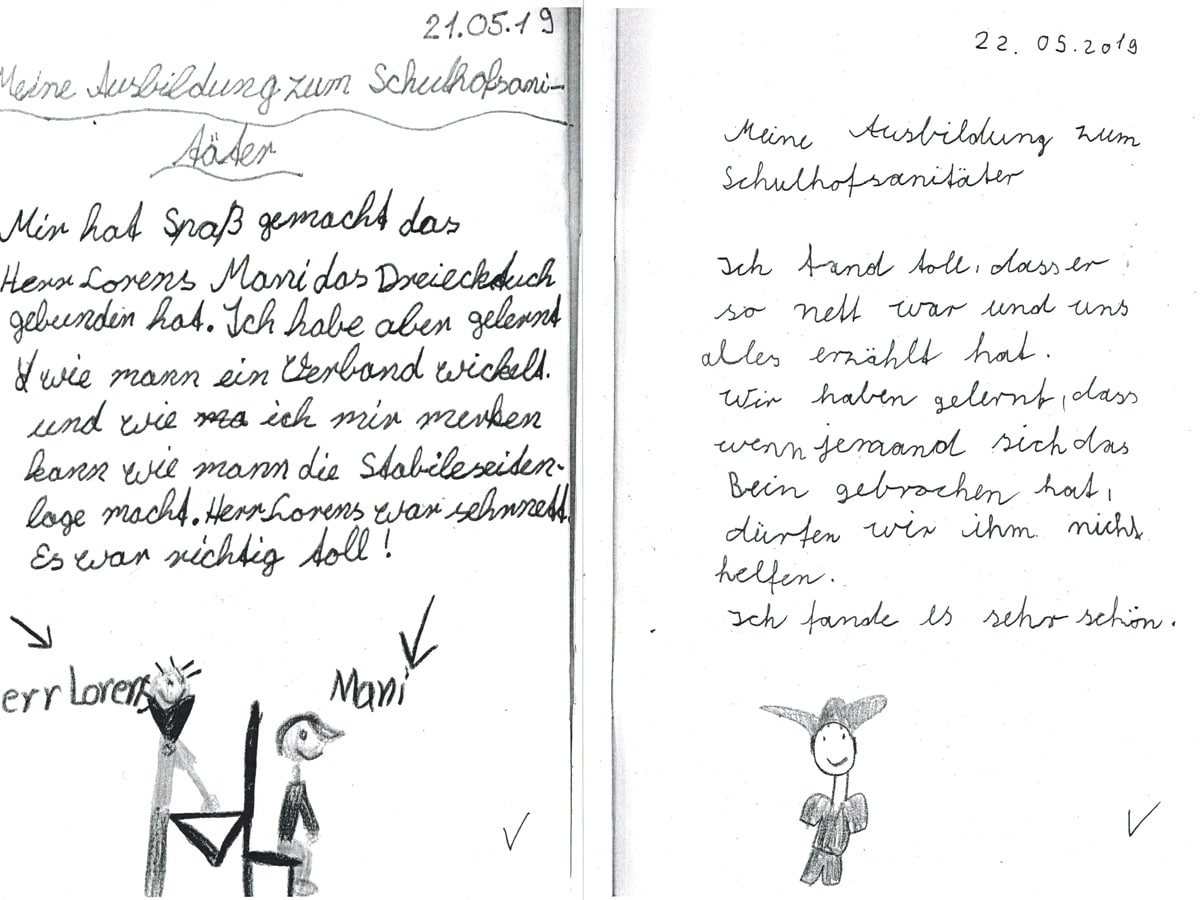 21.05.19
Meine Ausbildung zum Schulhofsani-
täter
Mir hat Spaß gemacht das
Herr Lorens Mani das Dreiecktuch
gebunden hat. Ich habe aben gelernt
wie mann ein Verband wickelt.
und wie ich mir merken
kann wie mann die Stabileseiden-
lage macht. Herr Lorens war sehr nett.
Es war richtig toll!
err Lorens
Mani
22.05.2019
Meine Ausbildung zum
Schulhofsanitäter
Ich fand toll, dass er
so nett war und uns
alles erzählt hat.
Wir haben gelernt, dass
wenn jemand sich das
Bein gebrochen hat,
dürfen wir ihm nicht
helfen.
Ich fande es sehr schön.